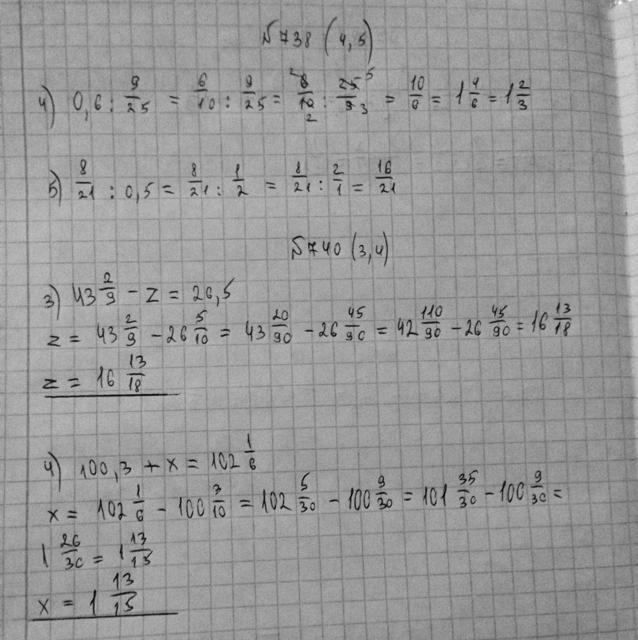 №738 (4,5)
4) 0,6 : 9/25 = 6/10 : 9/25 = 6/10 2 : 25 5/9 3 = 10/6 = 1 4/6 = 1 2/3
5) 8/21 : 0,5 = 8/21 : 1/2 = 8/21 : 2/1 = 16/21
№740 (3,4)
3) 43 2/9 - z = 26,5
z = 43 2/9 - 26 5/10 = 43 20/90 - 26 45/90 = 42 110/90 - 26 45/90 = 16 13/18
z = 16 13/18
4) 100,3 + x = 102 1/6
x = 102 1/6 - 100 3/10 = 102 5/30 - 100 9/30 = 101 35/30 - 100 9/30 =
1 26/30 = 1 13/15
x = 1 13/15